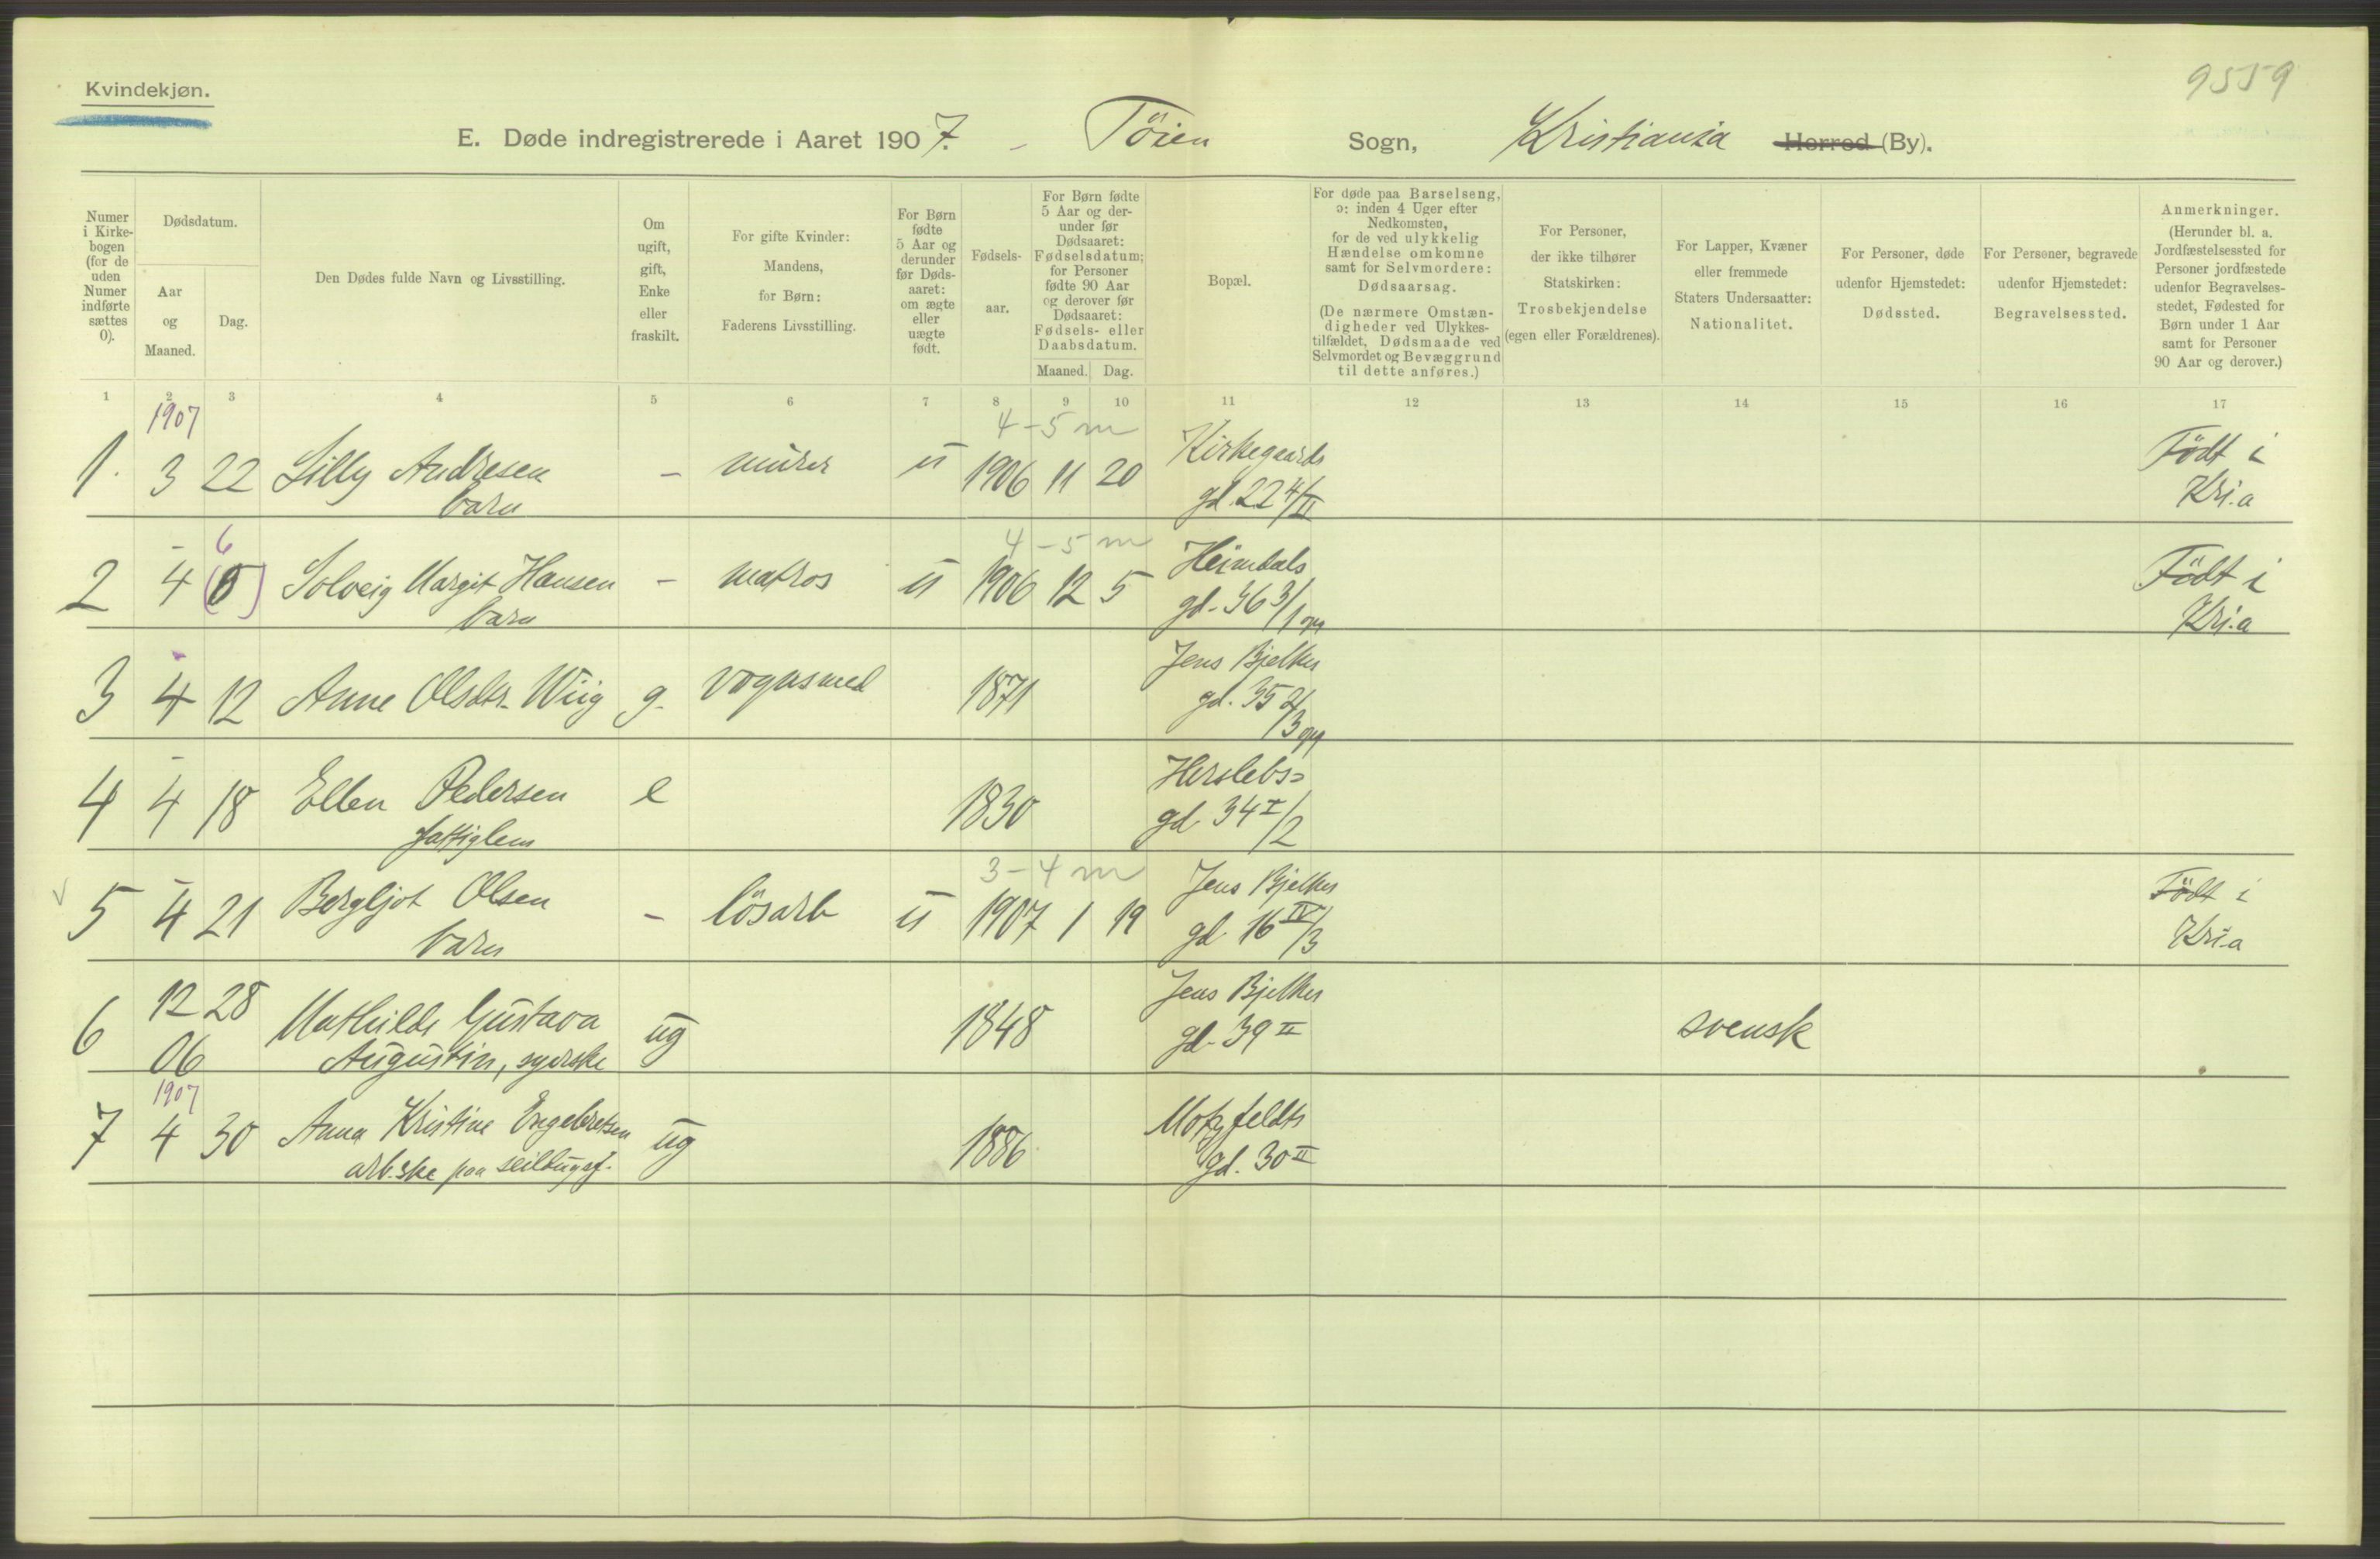 9559
Kvindekjøn.
E. Døde indregistrerede i Aaret 1907. – Töien Sogn, Kristiania Herred (By).
Numer i Kirkebogen (for de uden Numer indførte sættes 0).
Dødsdatum.
Aar og Maaned.
Dag.
Den Dødes fulde Navn og Livsstilling.
Om ugift, gift, Enke eller fraskilt.
For gifte Kvinder: Mandens, for Børn: Faderens Livsstilling.
For Børn fødte 5 Aar og derunder før Dødsaaret: om ægte eller uægte født.
Fødselsaar.
For Børn fødte 5 Aar og derunder før Dødsaaret: Fødselsdatum; for Personer fødte 90 Aar og derover før Dødsaaret: Fødsels- eller Daabsdatum.
Maaned. Dag.
Bopæl.
For døde paa Barselseng, ɔ: inden 4 Uger efter Nedkomsten, for de ved ulykkelig Hændelse omkomne samt for Selvmordere: Dødsaarsag.
(De nærmere Omstændigheder ved Ulykkestilfældet, Dødsmaade ved Selvmordet og Bevæggrund til dette anføres.)
For Personer, der ikke tilhører Statskirken: Trosbekjendelse (egen eller Forældrenes).
For Lapper, Kvæner eller fremmede Staters Undersaatter: Nationalitet.
For Personer, døde udenfor Hjemstedet: Dødssted.
For Personer, begravede udenfor Hjemstedet: Begravelsessted.
Anmerkninger.
(Herunder bl. a. Jordfæstelsessted for Personer jordfæstede udenfor Begravelsesstedet, Fødested for Børn under 1 Aar samt for Personer 90 Aar og derover.)
1 2 3 4 5 6 7 8 9 10 11 12 13 14 15 16 17
1907 4-5 m
1. 3 22 Lilly Andresen – murer u 1906 11 20 Kirkegaards Födt i
barn gd. 22 4/II Kri.a
– 6 4-5 m
2 4 (5) Solveig Margit Hansen – matros u 1906 12 5 Heimdals Födt i
barn gd. 36 3/1 opg Kri.a
3 4 12 Anne Olsdtr. Wiig g. vognsmed 1871 Jens Bjelkes
gd. 35 2/3 opg
–
4 4 18 Ellen Pedersen e 1830 Herslebs=
fattiglem gd. 34 I/2
– 3-4 m
5 4 21 Bergljot Olsen – lösarb u 1907 1 19 Jens Bjelkes Födt i
barn gd. 16 IV/3 Kri.a
6 12 28 Mathilde Gustava ug 1848 Jens Bjelkes svensk
06 Augustin, syerske gd. 39 II
1907
7 4 30 Anna Kristine Engebretsen ug 1886 Motzfeldts
arb.ske paa seildugsf. gd. 30 II